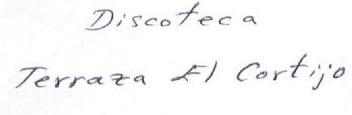 Discoteca
Terraza El Cortijo